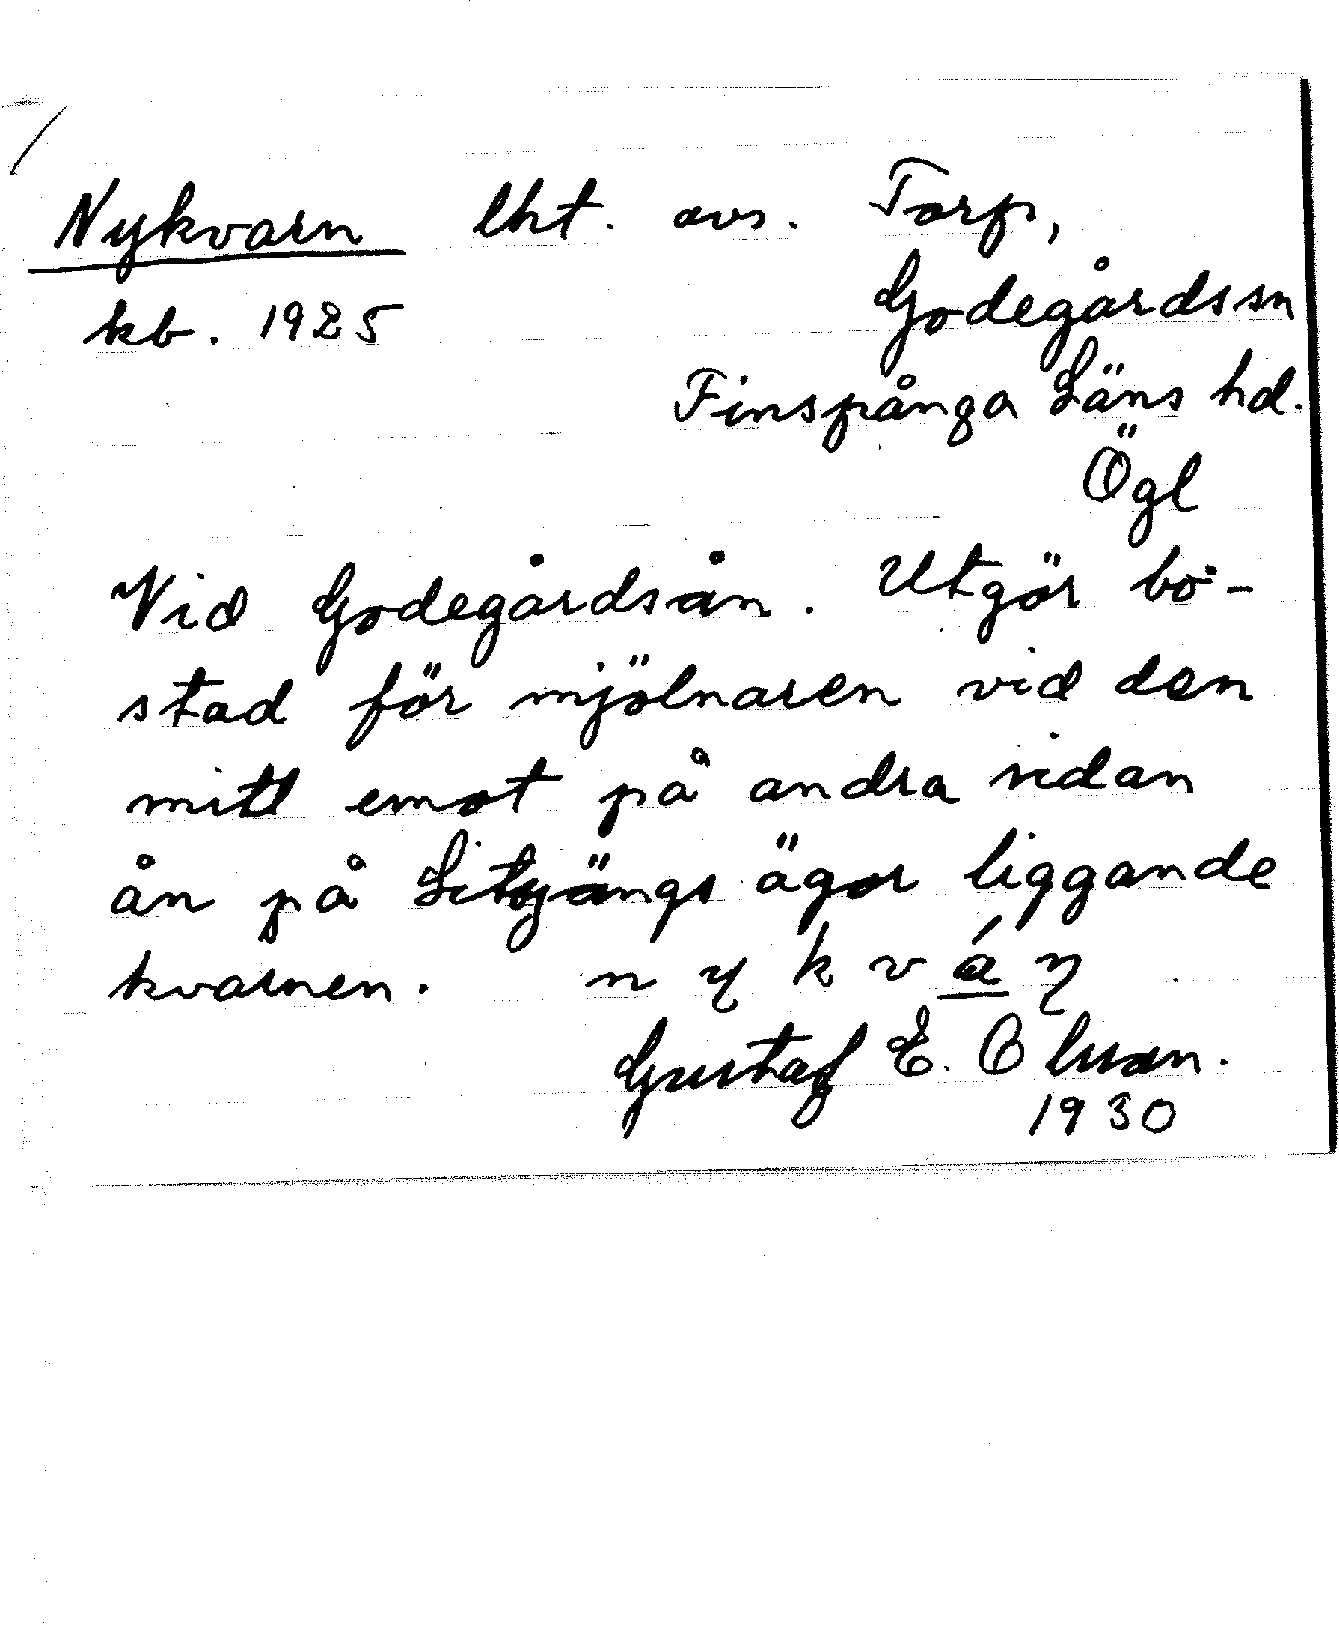 Nykvarn lht. avs. Torp,
Godegårds sn
kb. 1925
Finspånga Läns hd.
Ögl
Vid Godegårdsån. Utgör bo-
stad för mjölnaren vid den
mitt emot på andra sidan
ån på ägor liggande
kvarnen. n y k v á ɳ
Gustaf E. Olsson.
1930